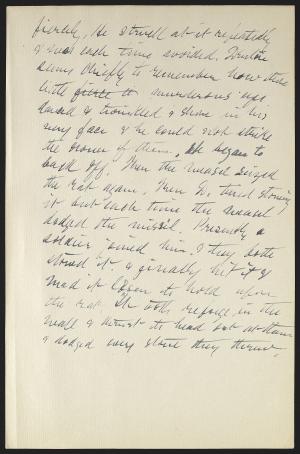 fiercely, He struck at it repeatedly
& was each time avoided. Winton
seems chiefly to remember how those
little fierce & murderous eyes
danced & twinkled & shone in his
very face & he could not strike
the owner of them. He began to
back off. Then the weasel seized
the rat again. Then W. tried stoning
it but each time the weasel
dodged the missile. Presently a
soldier joined him & they both
stoned it & finally hit it &
made it loosen its hold upon
the rat. It took refuge in the
wall & thrust its head out at them
& dodged every stone they threw.